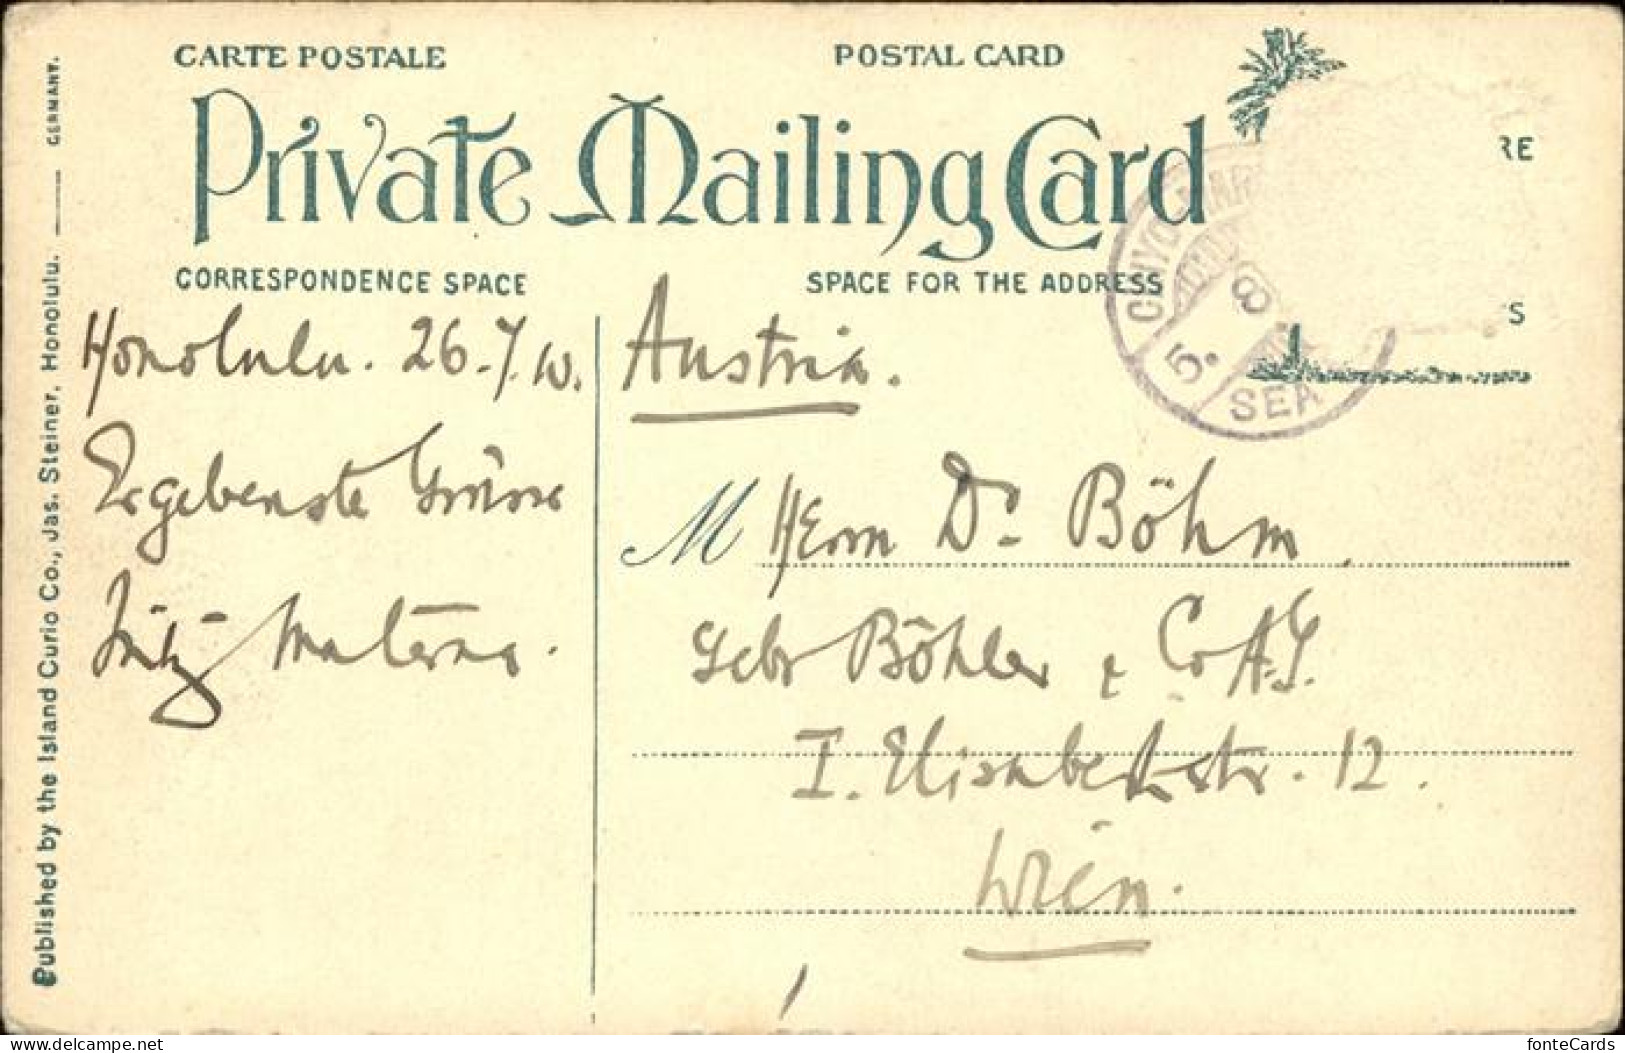 CARTE POSTALE
POSTAL CARD
Private Mailing Card
RE
CORRESPONDENCE SPACE
SPACE FOR THE ADDRESS
S
SEA
5.
8
Honolulu. 26.7.10.
Ergebenste Grüsse
Fritz Materna.
Austria.
M Herrn Dr. Böhm,
Gebr Böhler & Co A.G.
I. Elisabethstr. 12.
Wien.
Published by the Island Curio Co., Jas. Steiner, Honolulu.
GERMANY.
www.delcampe.net
fonteCards